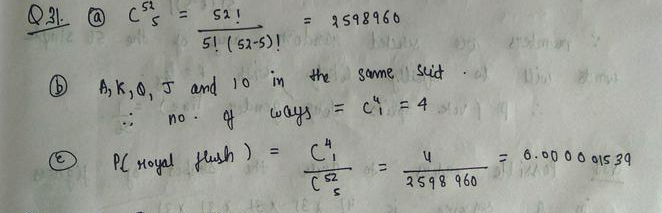 Q 31. (a) C⁵²₅ = 52! / 5! (52-5)! = 2598960
(b) A, K, Q, J and 10 in the same suit.
∴ no. of ways = C⁴₁ = 4
(c) P( royal flush ) = C⁴₁ / C⁵²₅ = 4 / 2598 960 = 0.00000 01539